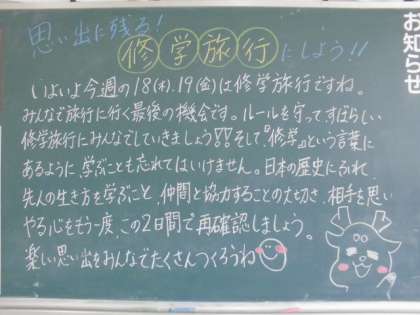 お知らせ
思い出に残る!
修学旅行にしよう!!
いよいよ今週の18(木).19(金)は修学旅行ですね。
みんなで旅行に行く最後の機会です。ルールを守って、すばらしい
修学旅行にみんなでしていきましょう!!そして『修学』という言葉に
あるように、学ぶことも忘れてはいけません。日本の歴史にふれ、
先人の生き方を学ぶこと、仲間と協力することの大切さ、相手を思い
やる心をもう一度、この2日間で再確認しましょう。
楽しい思い出をみんなでたくさんつくろうね